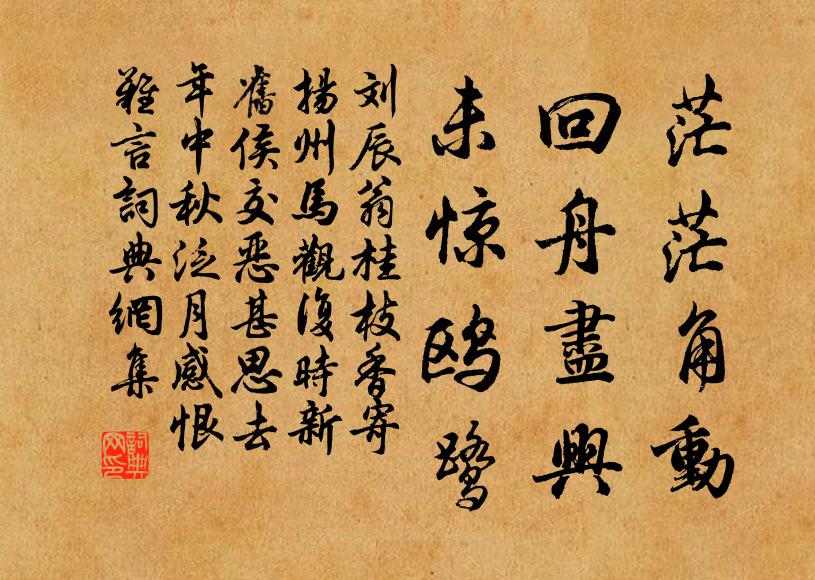 茫茫角動
回舟盡興
未惊鸥鹭
刘辰翁桂枝香寄
揚州馬觀復時新
舊侯交惡甚思去
年中秋泛月感恨
難言詞典網集
詞典
网印